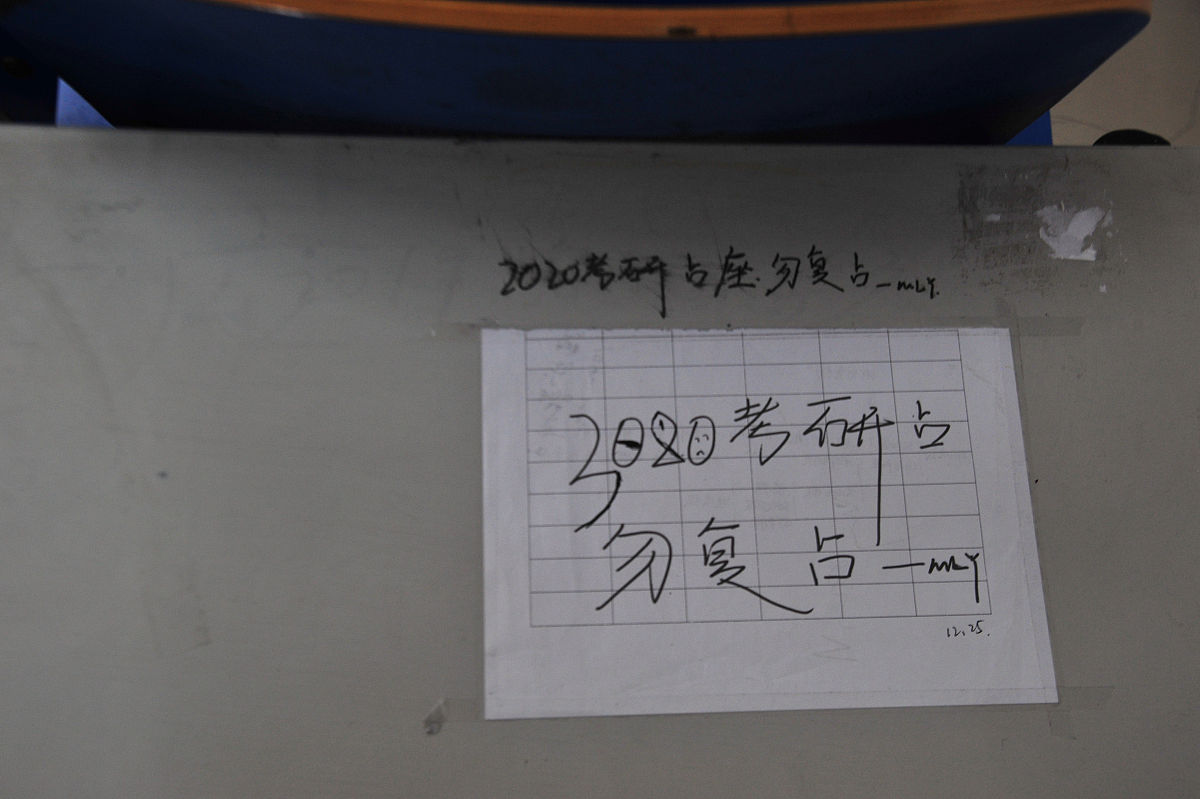 2020考研占座.勿复占—mLY.
2020考研占
勿复占—mLY
12.25.